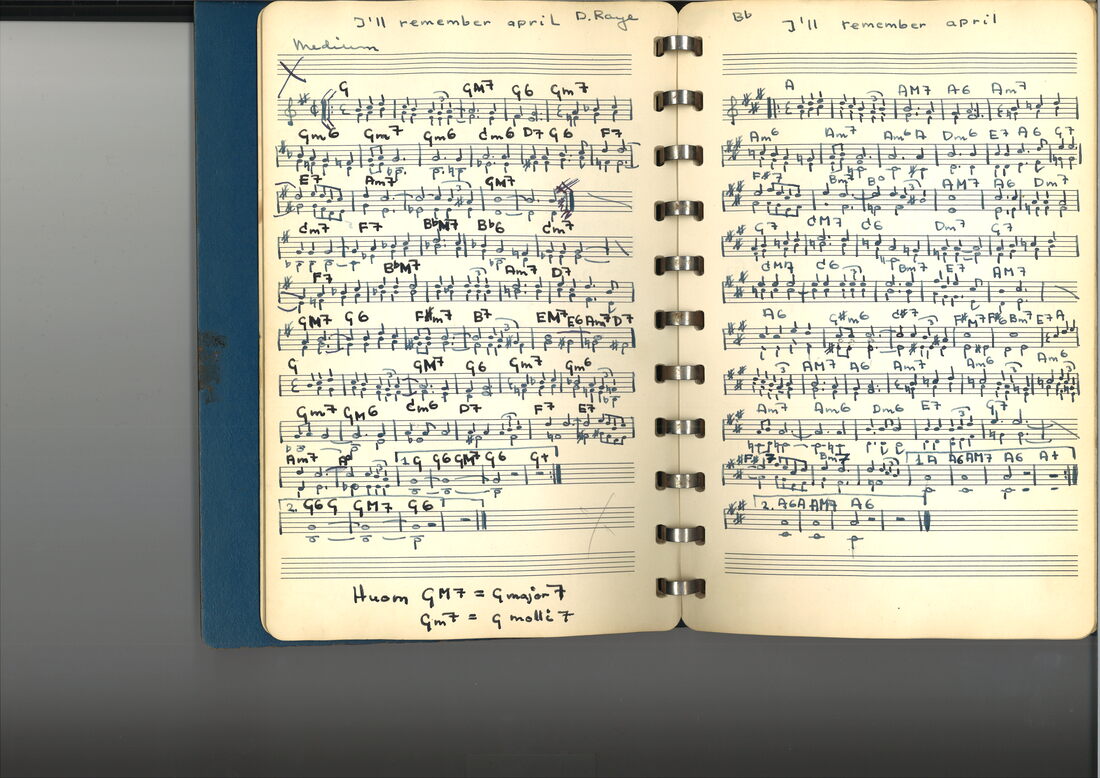 I'll remember april D. Raye
Medium
G GM7 G6 Gm7
Gm6 Gm7 Gm6 Cm6 D7 G6 F7
E7 Am7 GM7
Cm7 F7 BbM7 Bb6 Cm7
F7 BbM7 Am7 D7
GM7 G6 F#m7 B7 EM7 E6 Am7 D7
G GM7 G6 Gm7 Gm6
Gm7 GM6 Cm6 D7 F7 E7
Am7 1. G G6 GM7 G6 G+
2. G6 G GM7 G6
Huom GM7 = G major 7
Gm7 = G molli 7
Bb I'll remember april
A AM7 A6 Am7
Am6 Am7 Am6 A Dm6 E7 A6 G7
F#7 Bm7 AM7 A6 Dm7
G7 CM7 C6 Dm7 G7
CM7 C6 Bm7 E7 AM7
A6 G#m6 C#7 F#M7 F#6 Bm7 E7 A
AM7 A6 Am7 Am6 Am6
Am7 Am6 Dm6 E7 G7
F#7 Bm7 1. A A6 AM7 A6 A+
2. A6 A AM7 A6